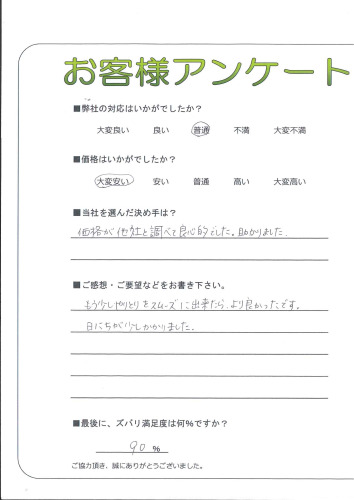 お客様アンケート
■弊社の対応はいかがでしたか?
大変良い 良い 普通 不満 大変不満
■価格はいかがでしたか?
大変安い 安い 普通 高い 大変高い
■当社を選んだ決め手は?
価格が他社と調べて良心的でした。助かりました。
■ご感想・ご要望などをお書き下さい。
もう少しやりとりをスムーズに出来たら、より良かったです。
日にちが少しかかりました。
■最後に、ズバリ満足度は何%ですか?
90 %
ご協力頂き、誠にありがとうございました。